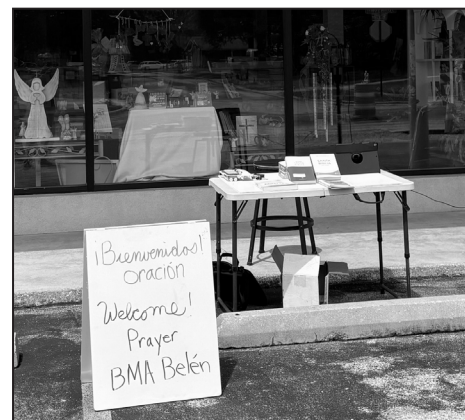 ¡Bienvenidos!
oración
Welcome!
Prayer
BMA Belén